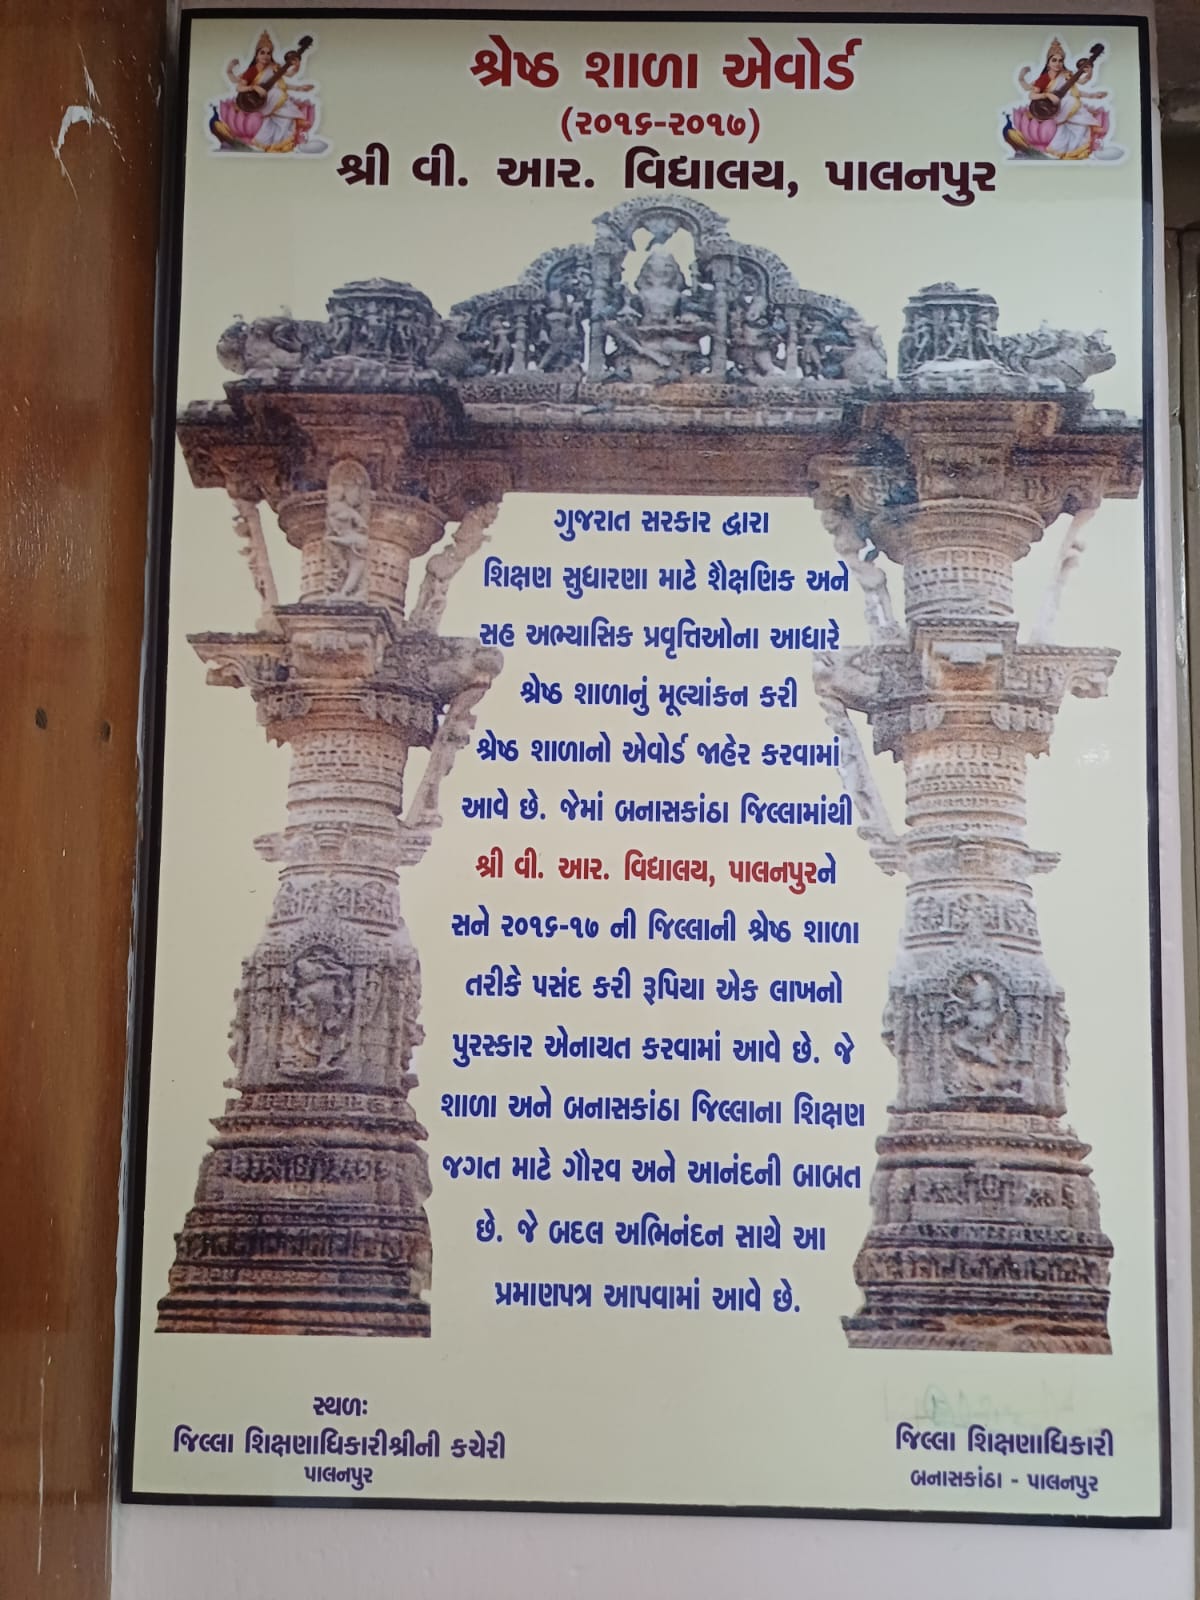 શ્રેષ્ઠ શાળા એવોર્ડ
(૨૦૧૬-૨૦૧૭)
શ્રી વી. આર. વિદ્યાલય, પાલનપુર
ગુજરાત સરકાર દ્વારા
શિક્ષણ સુધારણા માટે શૈક્ષણિક અને
સહ અભ્યાસિક પ્રવૃત્તિઓના આધારે
શ્રેષ્ઠ શાળાનું મૂલ્યાંકન કરી
શ્રેષ્ઠ શાળાનો એવોર્ડ જાહેર કરવામાં
આવે છે. જેમાં બનાસકાંઠા જિલ્લામાંથી
શ્રી વી. આર. વિદ્યાલય, પાલનપુરને
સને ૨૦૧૬-૧૭ ની જિલ્લાની શ્રેષ્ઠ શાળા
તરીકે પસંદ કરી રૂપિયા એક લાખનો
પુરસ્કાર એનાયત કરવામાં આવે છે. જે
શાળા અને બનાસકાંઠા જિલ્લાના શિક્ષણ
જગત માટે ગૌરવ અને આનંદની બાબત
છે. જે બદલ અભિનંદન સાથે આ
પ્રમાણપત્ર આપવામાં આવે છે.
સ્થળઃ
જિલ્લા શિક્ષણાધિકારીશ્રીની કચેરી
પાલનપુર
જિલ્લા શિક્ષણાધિકારી
બનાસકાંઠા - પાલનપુર